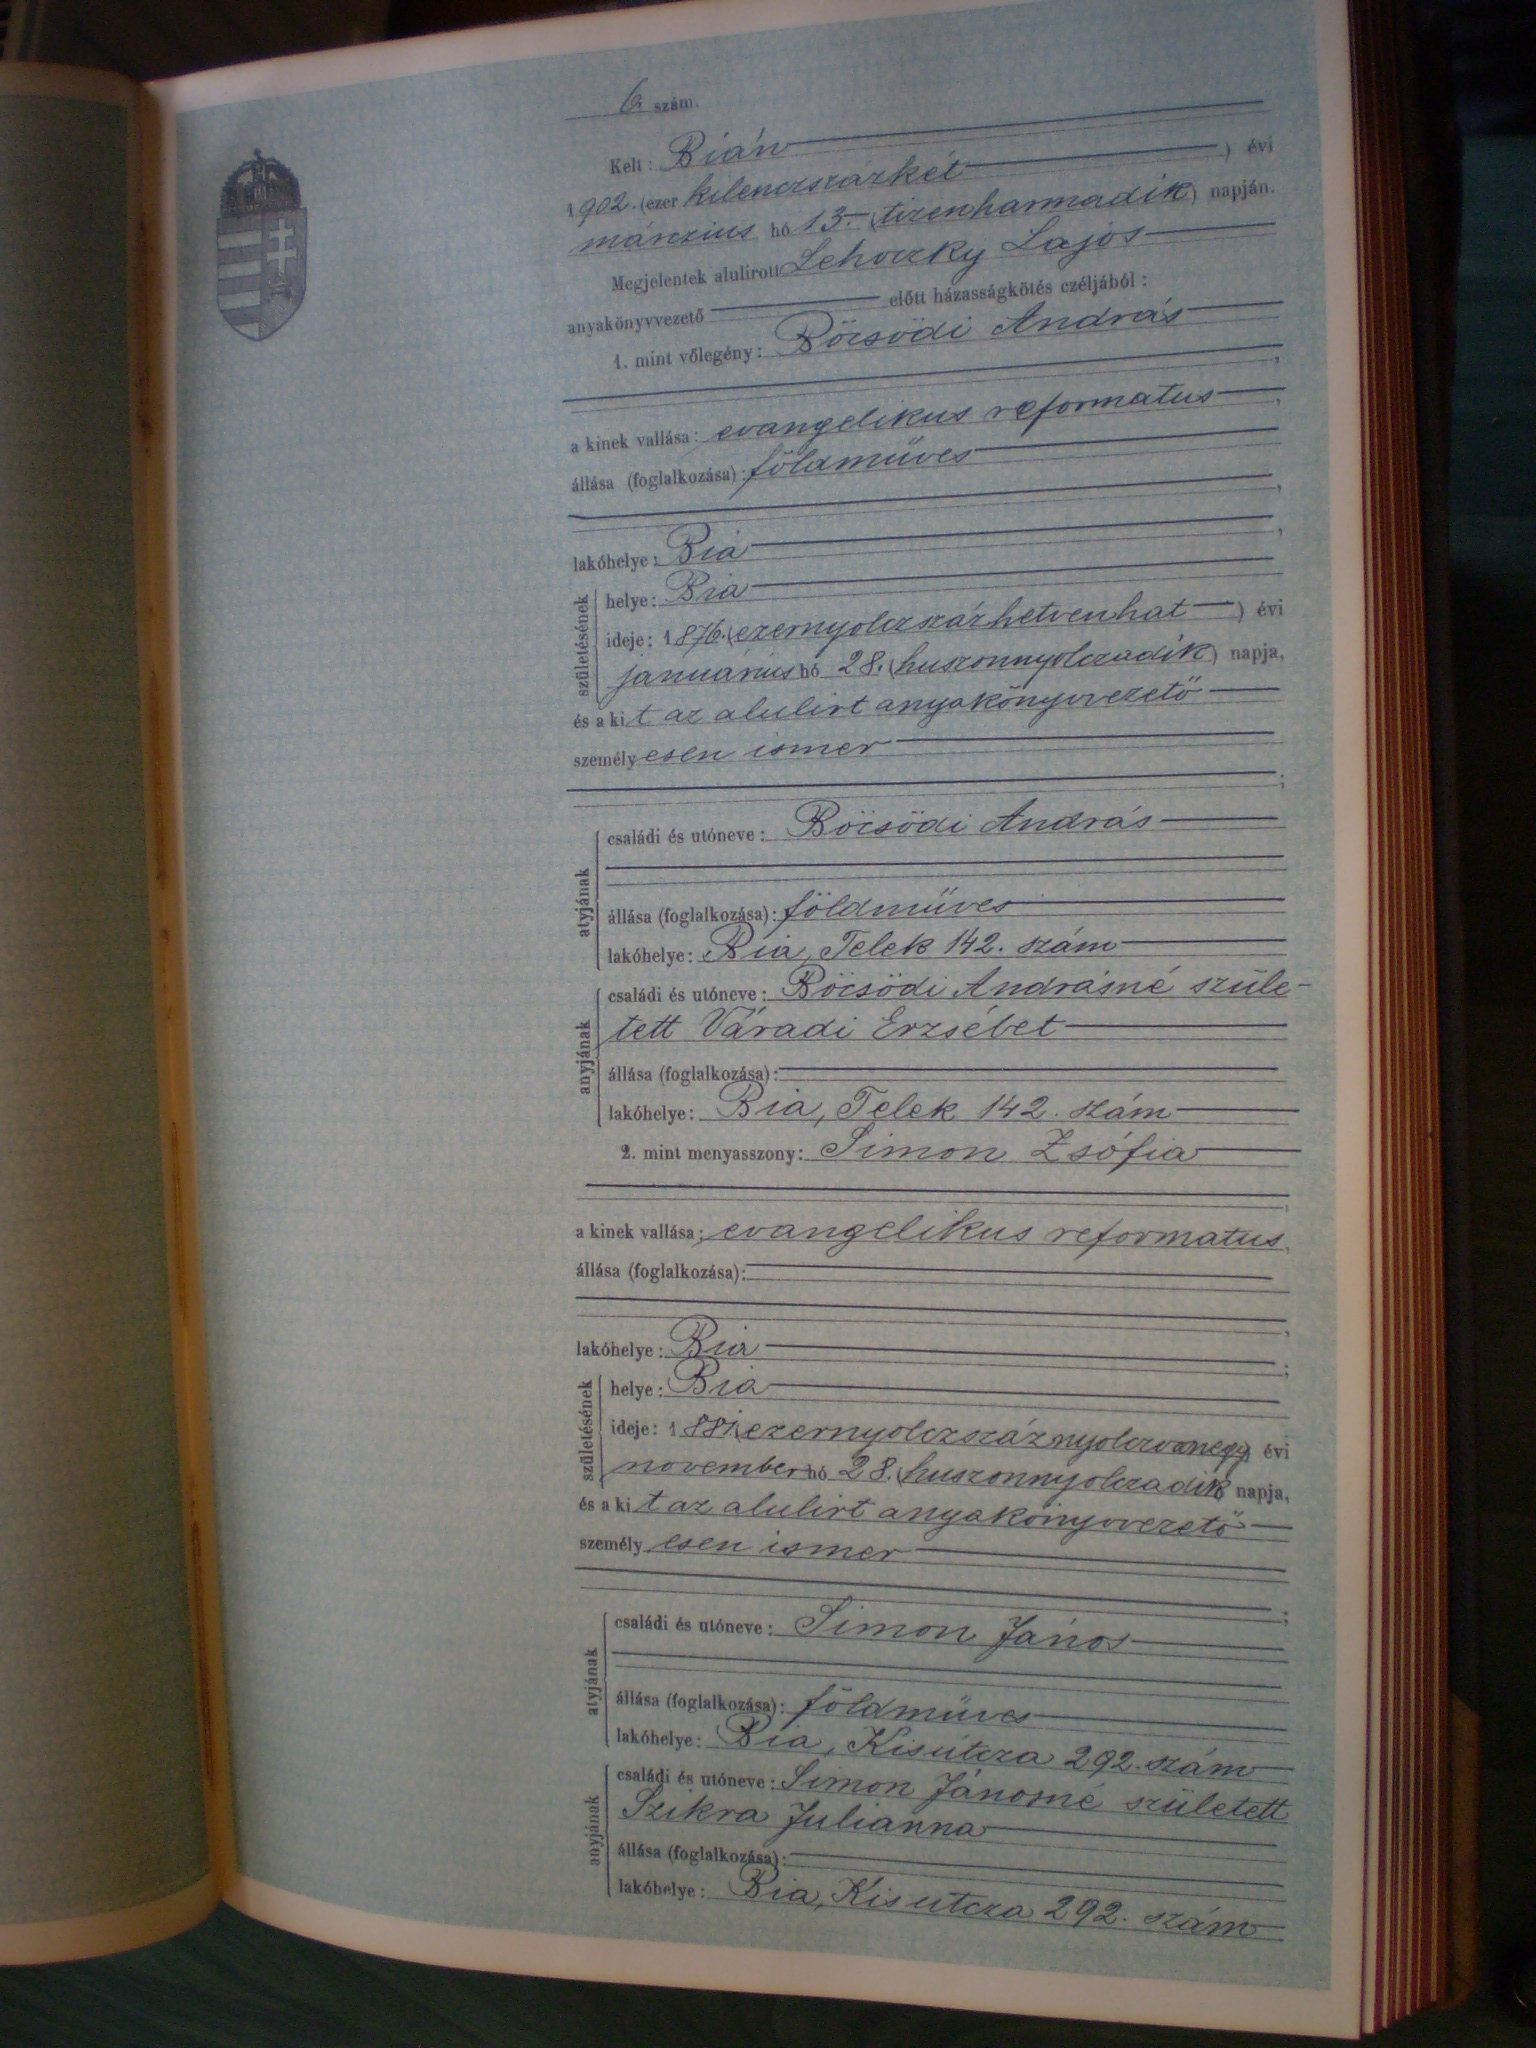 6. szám.
Kelt: Bián
1902. (ezer kilenczszázkét) évi
márczius hó 13. (tizenharmadik) napján.
Megjelentek alulirott Lehoczky Lajos
anyakönyvvezető előtt házasságkötés czéljából:
1. mint vőlegény: Böcsödi András
a kinek vallása: evangelikus reformatus,
állása (foglalkozása): földmüves
lakóhelye: Bia,
születésének
helye: Bia
ideje: 1876. (ezernyolczszázhetvenhat) évi
januárius hó 28. (huszonnyolczadik) napja,
és a kit az alulirt anyakönyvvezető
személyesen ismer;
atyjának
családi és utóneve: Böcsödi András
állása (foglalkozása): földmüves
lakóhelye: Bia, Telek 142. szám
anyjának
családi és utóneve: Böcsödi Andrásné szüle-
tett Váradi Erzsébet
állása (foglalkozása):
lakóhelye: Bia, Telek 142. szám
2. mint menyasszony: Simon Zsófia
a kinek vallása: evangelikus reformatus,
állása (foglalkozása):
lakóhelye: Bia;
születésének
helye: Bia
ideje: 1881. (ezernyolczszáznyolczvanegy) évi
november hó 28. (huszonnyolczadik) napja,
és a kit az alulirt anyakönyvvezető
személyesen ismer;
atyjának
családi és utóneve: Simon János
állása (foglalkozása): földmüves
lakóhelye: Bia, Kisutcza 292. szám
anyjának
családi és utóneve: Simon Jánosné született
Szikra Julianna
állása (foglalkozása):
lakóhelye: Bia, Kisutcza 292. szám